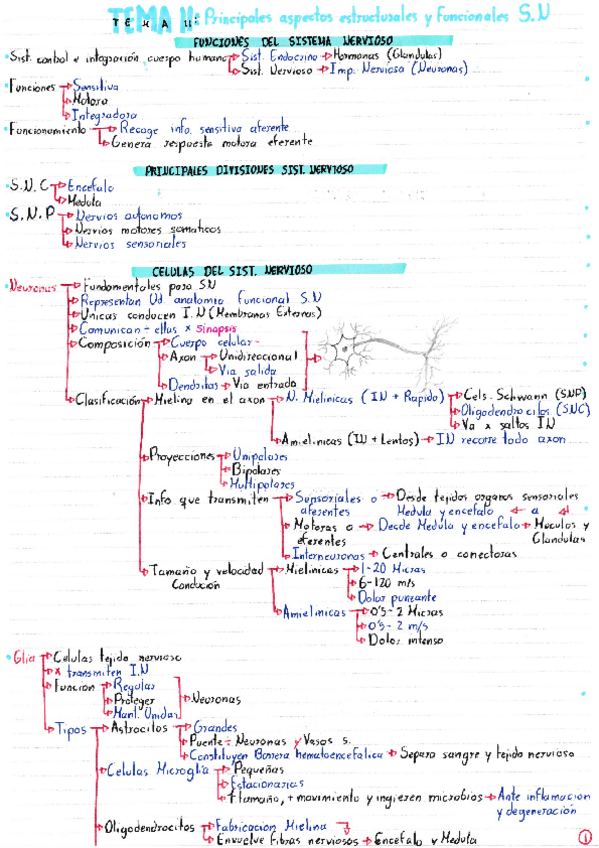 TEMA 11: Principales aspectos estructurales y Funcionales S.N
FUNCIONES DEL SISTEMA NERVIOSO
Sist. control e integración cuerpo humano → Sist. Endocrino → Hormonas (Glandulas)
Sist. Nervioso → Imp. Nervioso (Neuronas)
Funciones → Sensitiva
Motora
Integradora
Funcionamiento → Recoge info. sensitiva aferente
Genera respuesta motora eferente
PRINCIPALES DIVISIONES SIST. NERVIOSO
S.N.C → Encefalo
Medula
S.N.P → Nervios autonomos
Nervios motores somaticos
Nervios sensoriales
CELULAS DEL SIST. NERVIOSO
Neuronas → Fundamentales para SN
Representan Ud. anatomia Funcional S.N
Unicas conducen I.N (Membranas Externas)
Comunican ÷ ellas x sinapsis
Composición → Cuerpo celular
Axon → Unidireccional
Via salida
Dendritas → Via entrada
Clasificación → Mielina en el axon → N. Mielinicas (IN + Rapido) → Cels. Schwann (SNP)
Oligodendrocitos (SNC)
Va x saltos IN
Amielinicas (IN + Lentos) → IN recorre todo axon
Proyecciones → Unipolares
Bipolares
Multipolares
Info que transmiten → Sensoriales o → Desde tejidos organos sensoriales
aferentes Medula y encefalo ← a ↵
Motoras o → Desde Medula y encefalo → Musculos y
eferentes Glandulas
Interneuronas → Centrales o conectoras
Tamaño y velocidad → Mielinicas → 1-20 Micras
Condución 6-120 m/s
Dolor punzante
Amielinicas → 0'5-2 Micras
0'5-2 m/s
Dolor intenso
Glia → Celulas tejido nervioso
x transmiten I.N
Funcion → Regular
Proteger → Neuronas
Mant. Unidas
Tipos → Astrocitos → Grandes
Puente ÷ Neuronas y Vasos s.
Constituyen Barrera hematoencefalica → Separa sangre y tejido nervioso
Celulas Microglia → Pequeñas
Estacionarias
↑ tamaño, + movimiento y ingieren microbios → Ante inflamacion
y degeneración
Oligodendrocitos → Fabricación Mielina
Envuelve fibras nerviosas → Encefalo y Medula
1